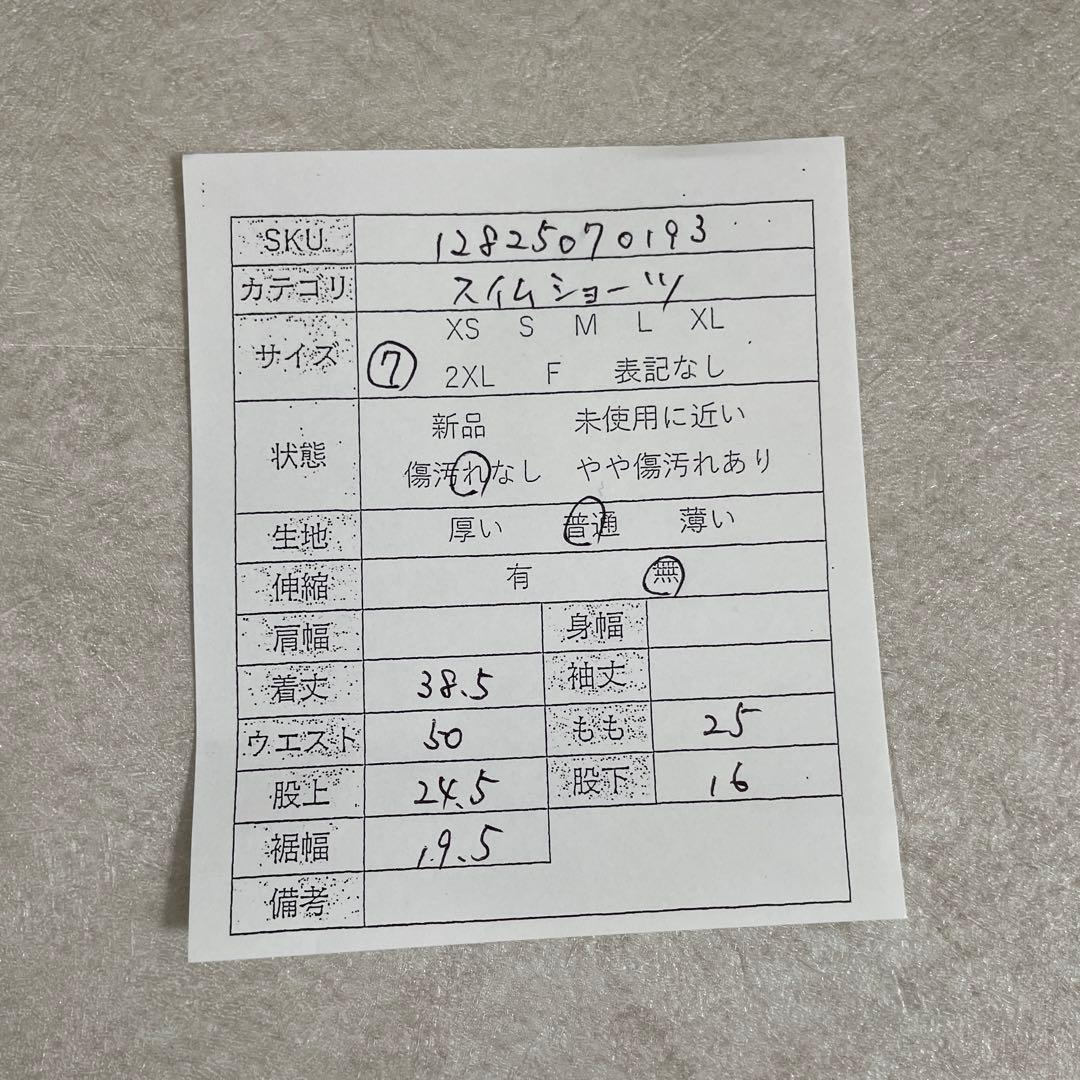 SKU 12825070193
カテゴリ スイムショーツ
サイズ XS S M L XL
⑦ 2XL F 表記なし
状態 新品 未使用に近い
傷汚れなし やや傷汚れあり
生地 厚い 普通 薄い
伸縮 有 無
肩幅 身幅
着丈 38.5 袖丈
ウエスト 50 もも 25
股上 24.5 股下 16
裾幅 19.5
備考